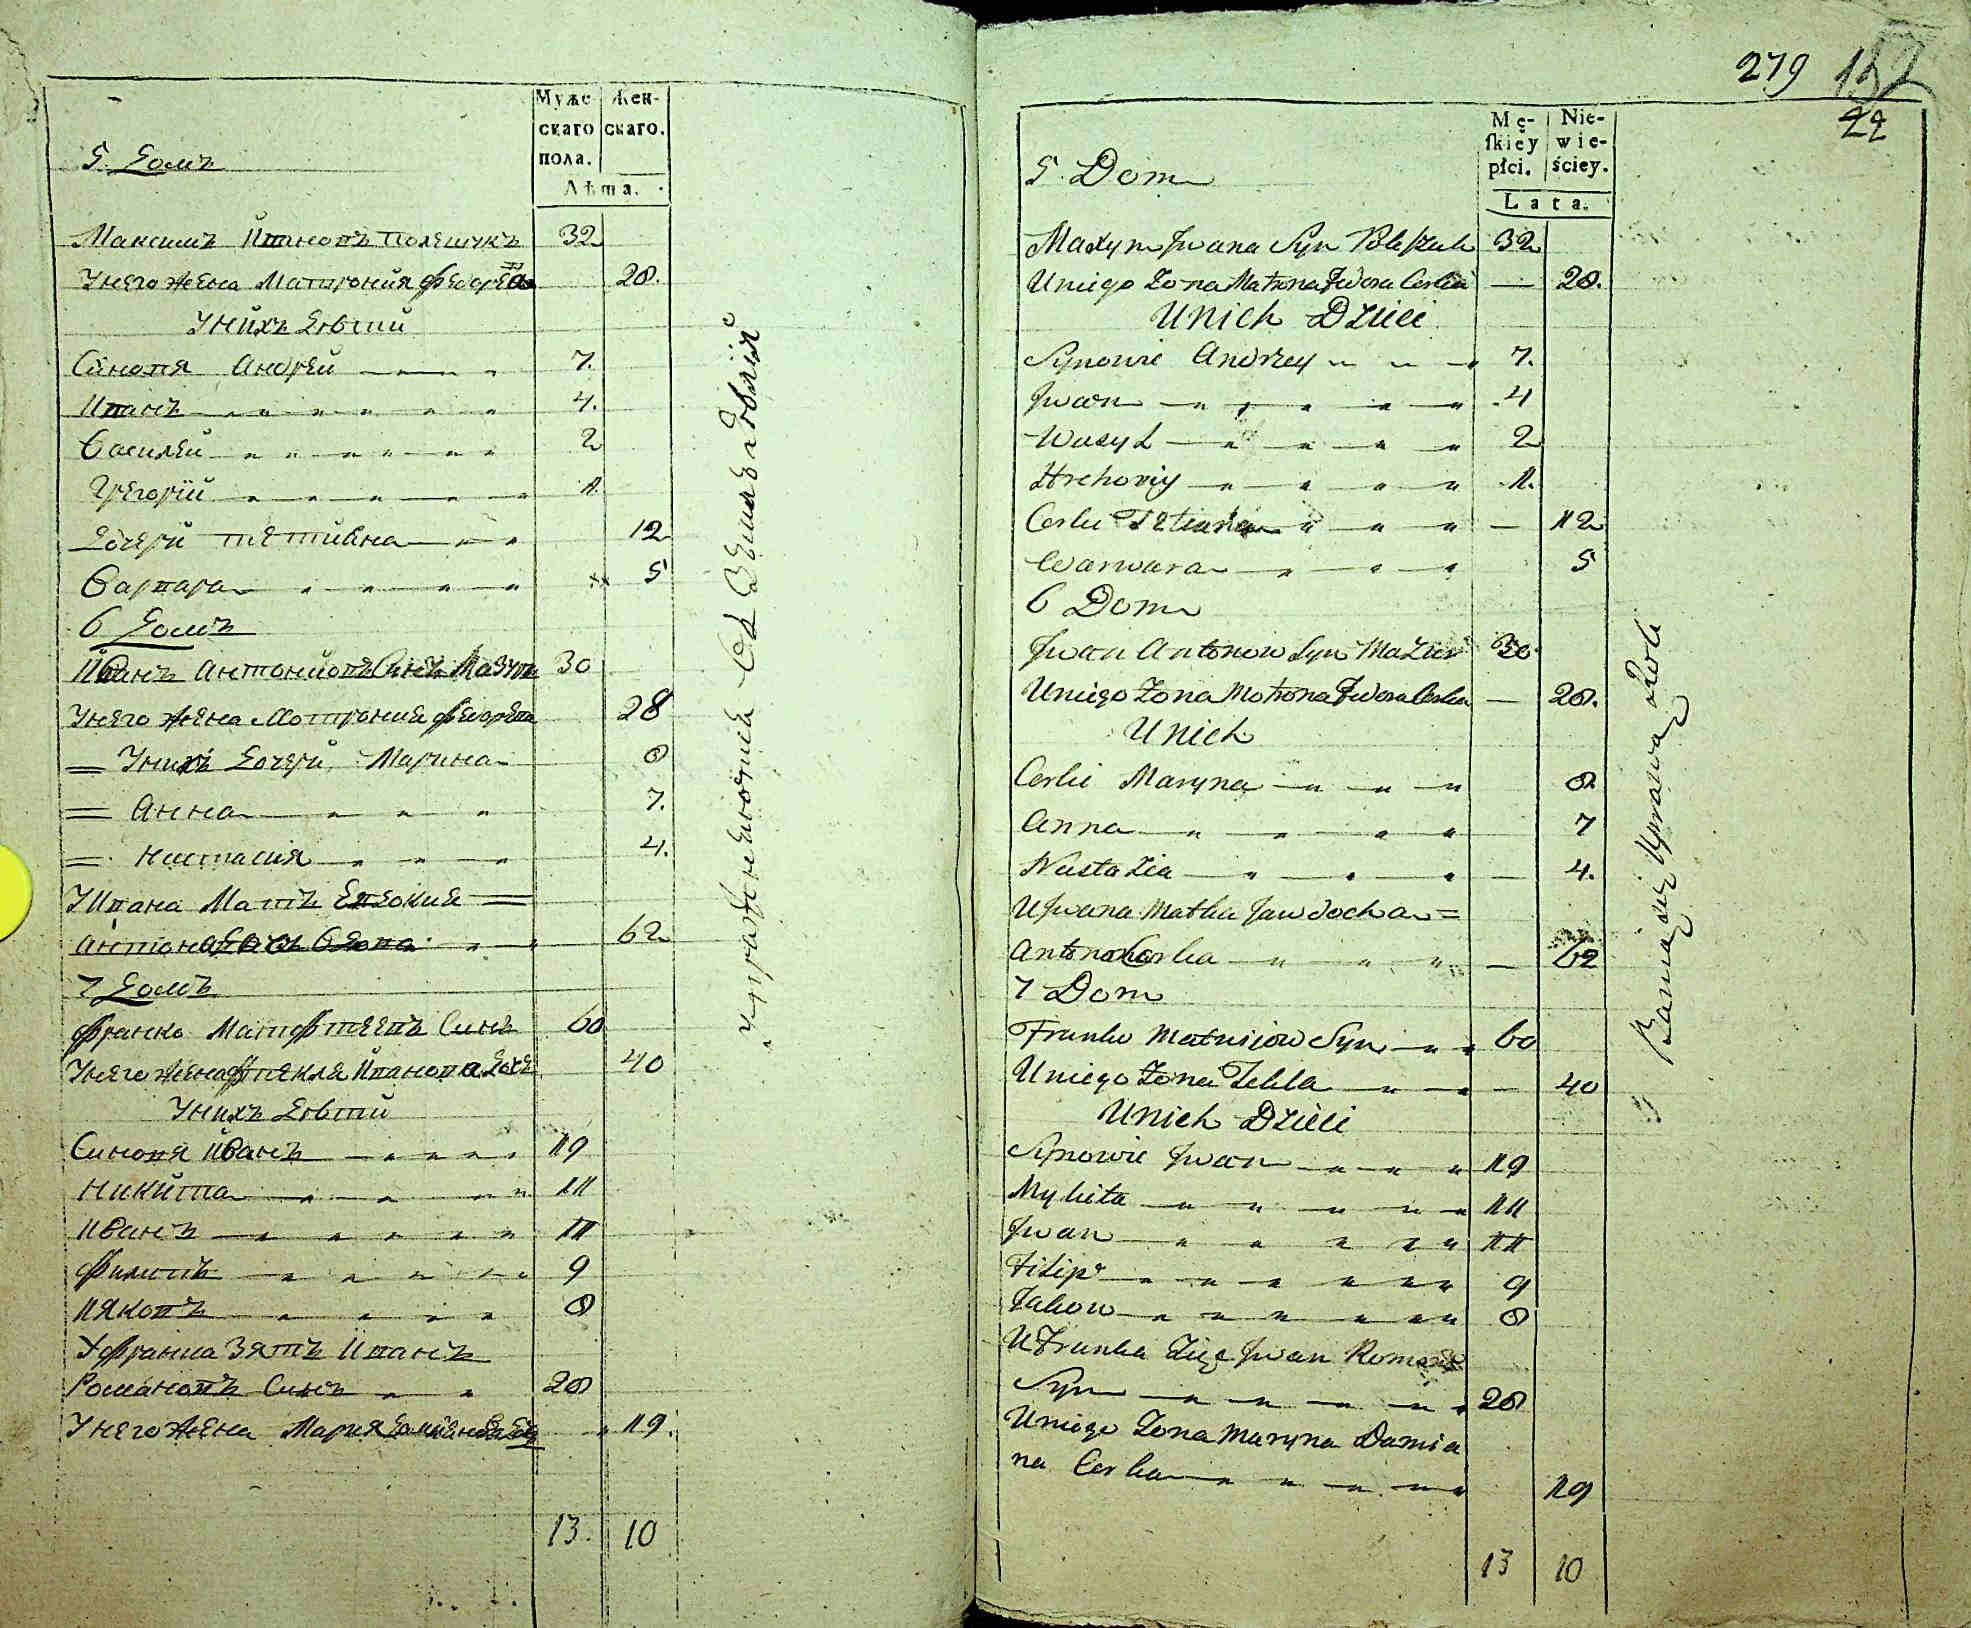 Муже
скаго
пола.
Жен-
скаго.
Лѣта.
5. Домъ
Максимъ Ивановъ Полещукъ 32
У него жена Матрония Феодре 28.
У нихъ дѣти
Синовя Андрей 7.
Иванъ 4.
Василей 2
Грегорий 1.
Дочери Тетияна 12
Варвара 5
6 Домъ
Иванъ Антонйовъ Синъ Мазур 30
У него жена Мотрония Феодрова 28
У нихъ Дочери Марина 8
Анна 7.
Настасия 4.
У Ивана Мать Евдокия
Антона 62
7 Домъ
Франко Матфтеевъ Синъ 60
У него жена Фтекля Иванова Доче 40
У нихъ дѣти
Синовя Иванъ 19
Никита 11
Иванъ 11
Филипъ 9
Яковъ 8
У Франка Зять Иванъ
Романовъ Синъ 28
У него жена Мария Дамиянова 19.
13. 10
упражненючися въ Земледѣлій
279
22
Mę-
skiey
płci.
Nie-
wie-
ściey.
Lata.
5. Dom
Maxym Jwana Syn Poleszuk 32
U niego Zona Matrona Fedora Corka — 28.
U nich Dzieci
Synowie Andrzey 7.
Jwan 4
Wasyl 2
Hrehoriy 1.
Corki Tetiana — 12
Warwara 5
6 Dom
Jwan Antonow Syn Mazur 30
U niego Zona Motrona Fedora Corka — 28.
U nich
Corki Maryna 8
Anna 7
Nastazia — 4.
U Jwana Matka Jawdocha =
Antona Corka — 62
7 Dom
Franko Matwiiow Syn 60
U niego Zona Tekla — 40
U nich Dzieci
Synowie Jwan 19
Mykita 11
Jwan 11
Filip 9
Jakow 8
U Franka Zięc Jwan Roman
Syn 28
U niego Zona Maryna Damia
na Corka 19
13 10
Bawiący się Uprawą Roli